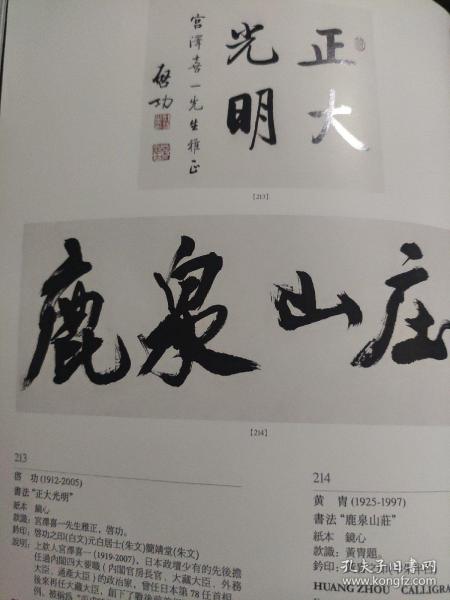 正大
光明
宫澤喜一先生雅正
啟功
[213]
鹿泉山庄
[214]
213
啓 功 (1912-2005)
書法“正大光明”
紙本 鏡心
款識：宮澤喜一先生雅正，啓功。
鈐印：啓功之印(白文)元白居士(朱文)簡靖堂(朱文)
説明：上款人宮澤喜一 (1919-2007)，日本政壇少有的先後擔
任過內閣四大要職（內閣官房長官、大藏大臣、外務
大臣、通産大臣）的政治家，曾任日本第 78 任首相，
後來再任大藏大臣，創下了戰後
214
黄 胄 (1925-1997)
書法“鹿泉山莊”
紙本 鏡心
款識：黄胄題。
鈐印：
HUANG ZHOU CALLIGR
孔夫子旧书网